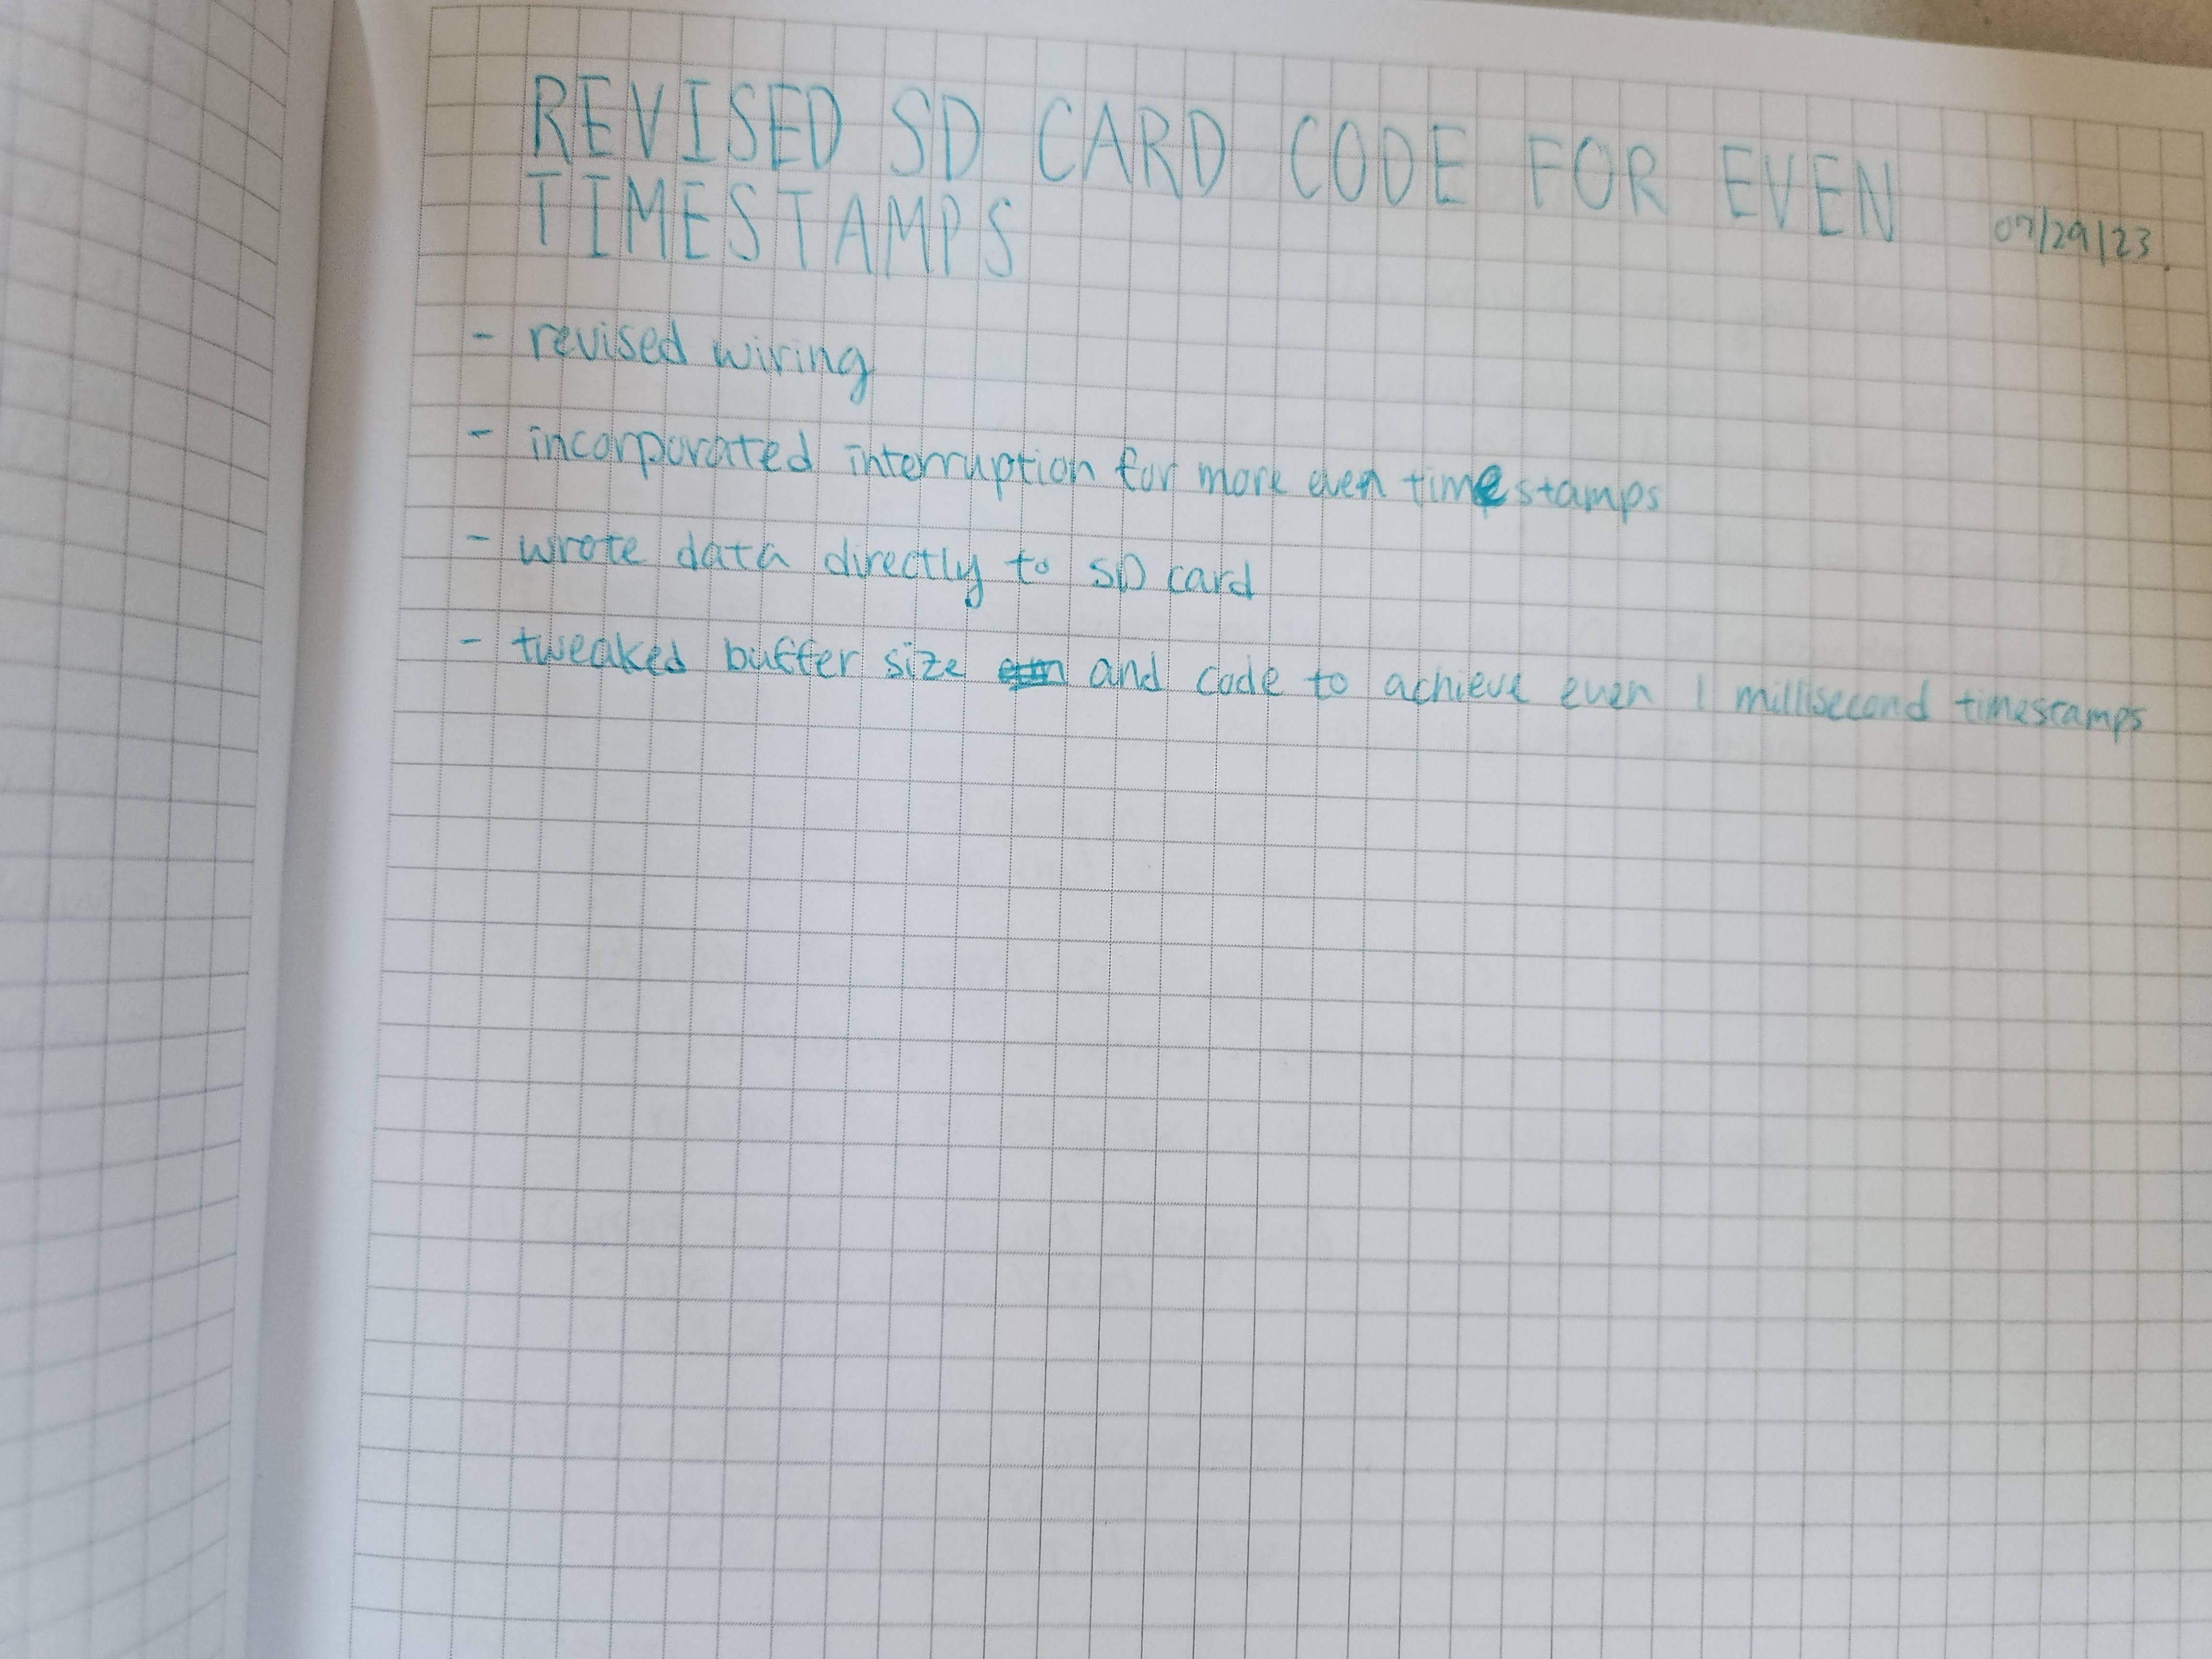 REVISED SD CARD CODE FOR EVEN
TIMESTAMPS
07/29/23.
- revised wiring
- incorporated interruption for more even timestamps
- wrote data directly to SD card
- tweaked buffer size and code to achieve even 1 millisecond timestamps